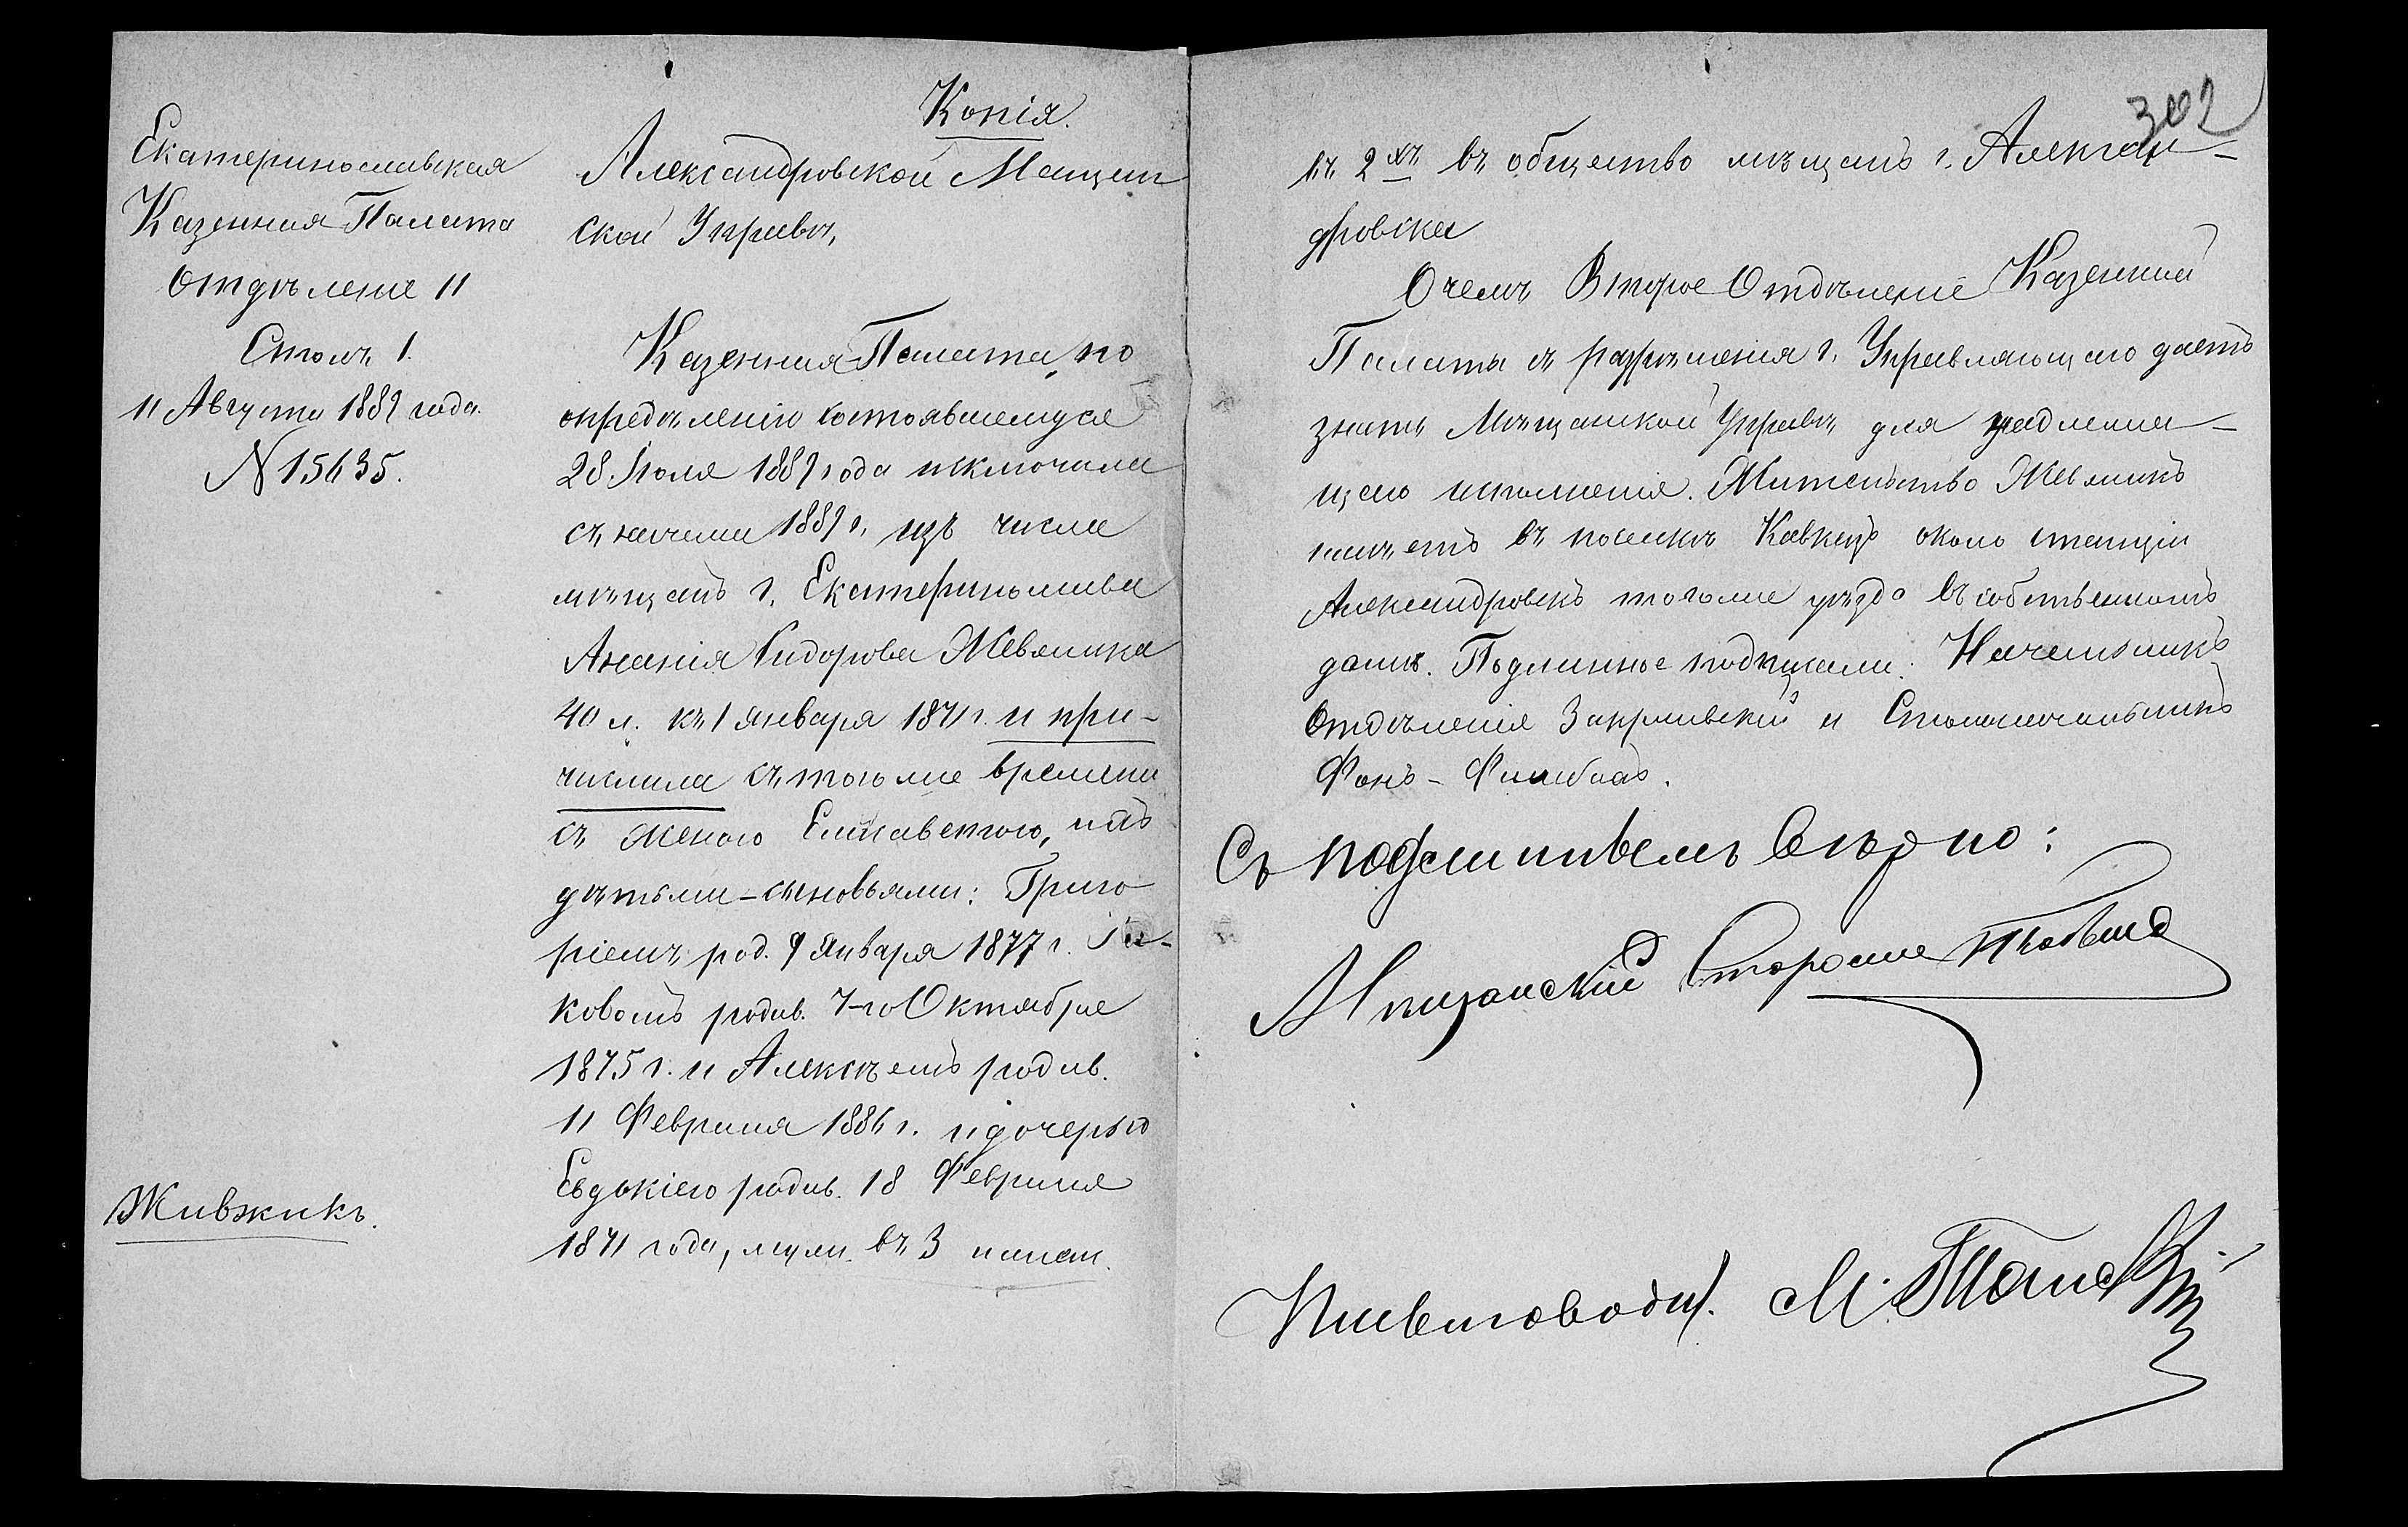 Копія.
Екатеринославская
Казенная Палата
Отдѣленіе II
Столъ 1.
11 Августа 1889 года.
N 15635.
Живжикъ.
Александровской Мещан
ской Управѣ,
Казенная Палата, по
опредѣленію состоявшемуся
28 Іюля 1889 года исключила
съ начала 1889 г. изъ числа
мѣщанъ г. Екатеринослава
Ананія Сидорова Жевжика
40 л. къ 1 января 1871 г. и при-
числила съ того же времени
съ женою Елисаветою,
дѣтьми-сыновьями: Григо
ріемъ род. 9 Января 1877 г. Іа-
ковомъ родив. 7-го Октября
1875 г. и Алексѣемъ родив.
11 Февраля 1886 г. и дочерью
Евдокіею родив. 18 Февраля
1871 года, муж. въ 3 женск.
302
въ 2хъ въ общество мѣщанъ г. Алексан-
дровска
О чемъ Второе Отдѣленіе Казенной
Палаты съ разрѣшенія г. Управляющаго даетъ
знать Мѣщанской Управѣ для надлежа-
щаго исполненія. Жительство Жевжикъ
имѣетъ въ поселкѣ Кавказъ около станціи
Александровскъ того же уѣзда въ собственномъ
домѣ. Подлинное подписали: Начальникъ
Отдѣленія Закржевскій и Столоначальникъ
Фонъ-
Съ подлиннымъ вѣрно:
Мѣщанскій Староста
Письмоводит. М.